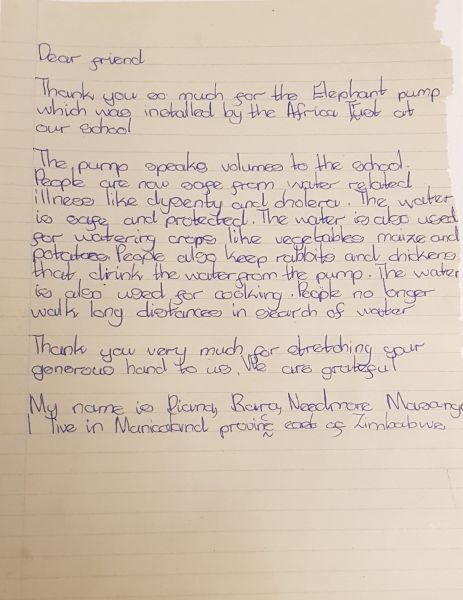 Dear friend
Thank you so much for the Elephant pump
which was installed by the Africa Trust at
our school
The pump speaks volumes to the school.
People are now safe from water related
illness like dysenty and cholera. The water
is safe and protected. The water is also used
for watering crops like vegetables maize and
potatoes. People also keep rabbits and chickens
that drink the water from the pump. The water
is also used for cooking. People no longer
walk long distances in search of water
Thank you very much for stretching your
generous hand to us. We are grateful
My name is Needmore
I live in Manicaland province east of Zimbabwe